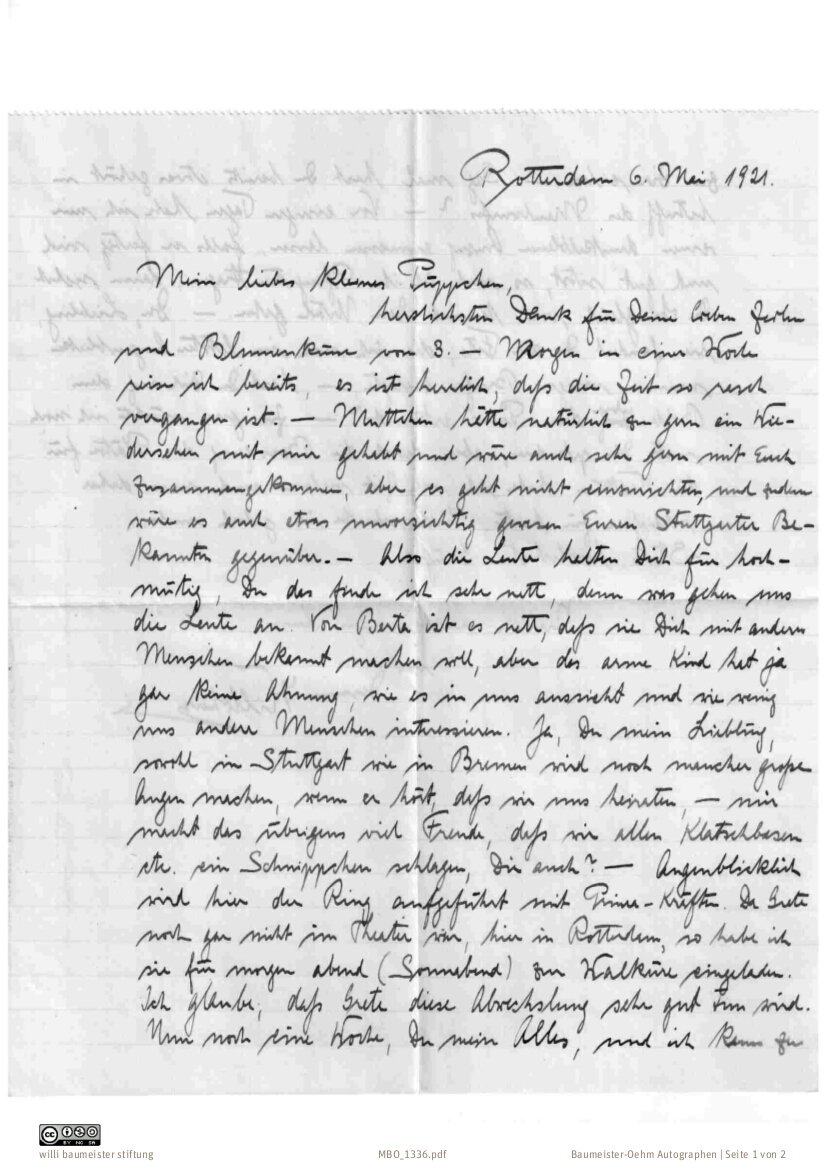 Rotterdam 6. Mai 1921.
Mein liebes kleines Püppchen,
herzlichsten Dank für Deine lieben Zeilen
und Blumenküsse vom 3. — Morgen in einer Woche
reise ich bereits, es ist herrlich, daß die Zeit so rasch
vergangen ist. — Muttchen hätte natürlich zu gern ein Wie-
dersehen mit mir gehabt und wäre auch sehr gern mit Euch
zusammengekommen, aber es geht nicht einzurichten, und zudem
wäre es auch etwas unvorsichtig gewesen Euren Stuttgarter Be-
kannten gegenüber. — Also die Leute halten Dich für hoch-
mütig, Du das finde ich sehr nett, denn was gehen uns
die Leute an. Von Berta ist es nett, daß sie Dich mit andern
Menschen bekannt machen will, aber das arme Kind hat ja
gar keine Ahnung, wie es in uns aussieht und wie wenig
uns andere Menschen interessieren. Ja, Du mein Liebling,
sowohl in Stuttgart wie in Bremen wird noch mancher große
Augen machen, wenn er hört, daß wir uns heiraten, — mir
macht das übrigens viel Freude, daß wir allen Klatschbasen
etc. ein Schnippchen schlagen, Dir auch? — Augenblicklich
wird hier der Ring aufgeführt mit Prima-Kräften. Da Grete
noch gar nicht im Theater war, hier in Rotterdam, so habe ich
sie für morgen abend (Sonnabend) zur Walküre eingeladen.
Ich glaube, daß Grete diese Abwechslung sehr gut tun wird.
Nun noch eine Woche, Du mein Alles, und ich kann zu
willi baumeister stiftung
MBO_1336.pdf
Baumeister-Oehm Autographen | Seite 1 von 2
BY NC SA